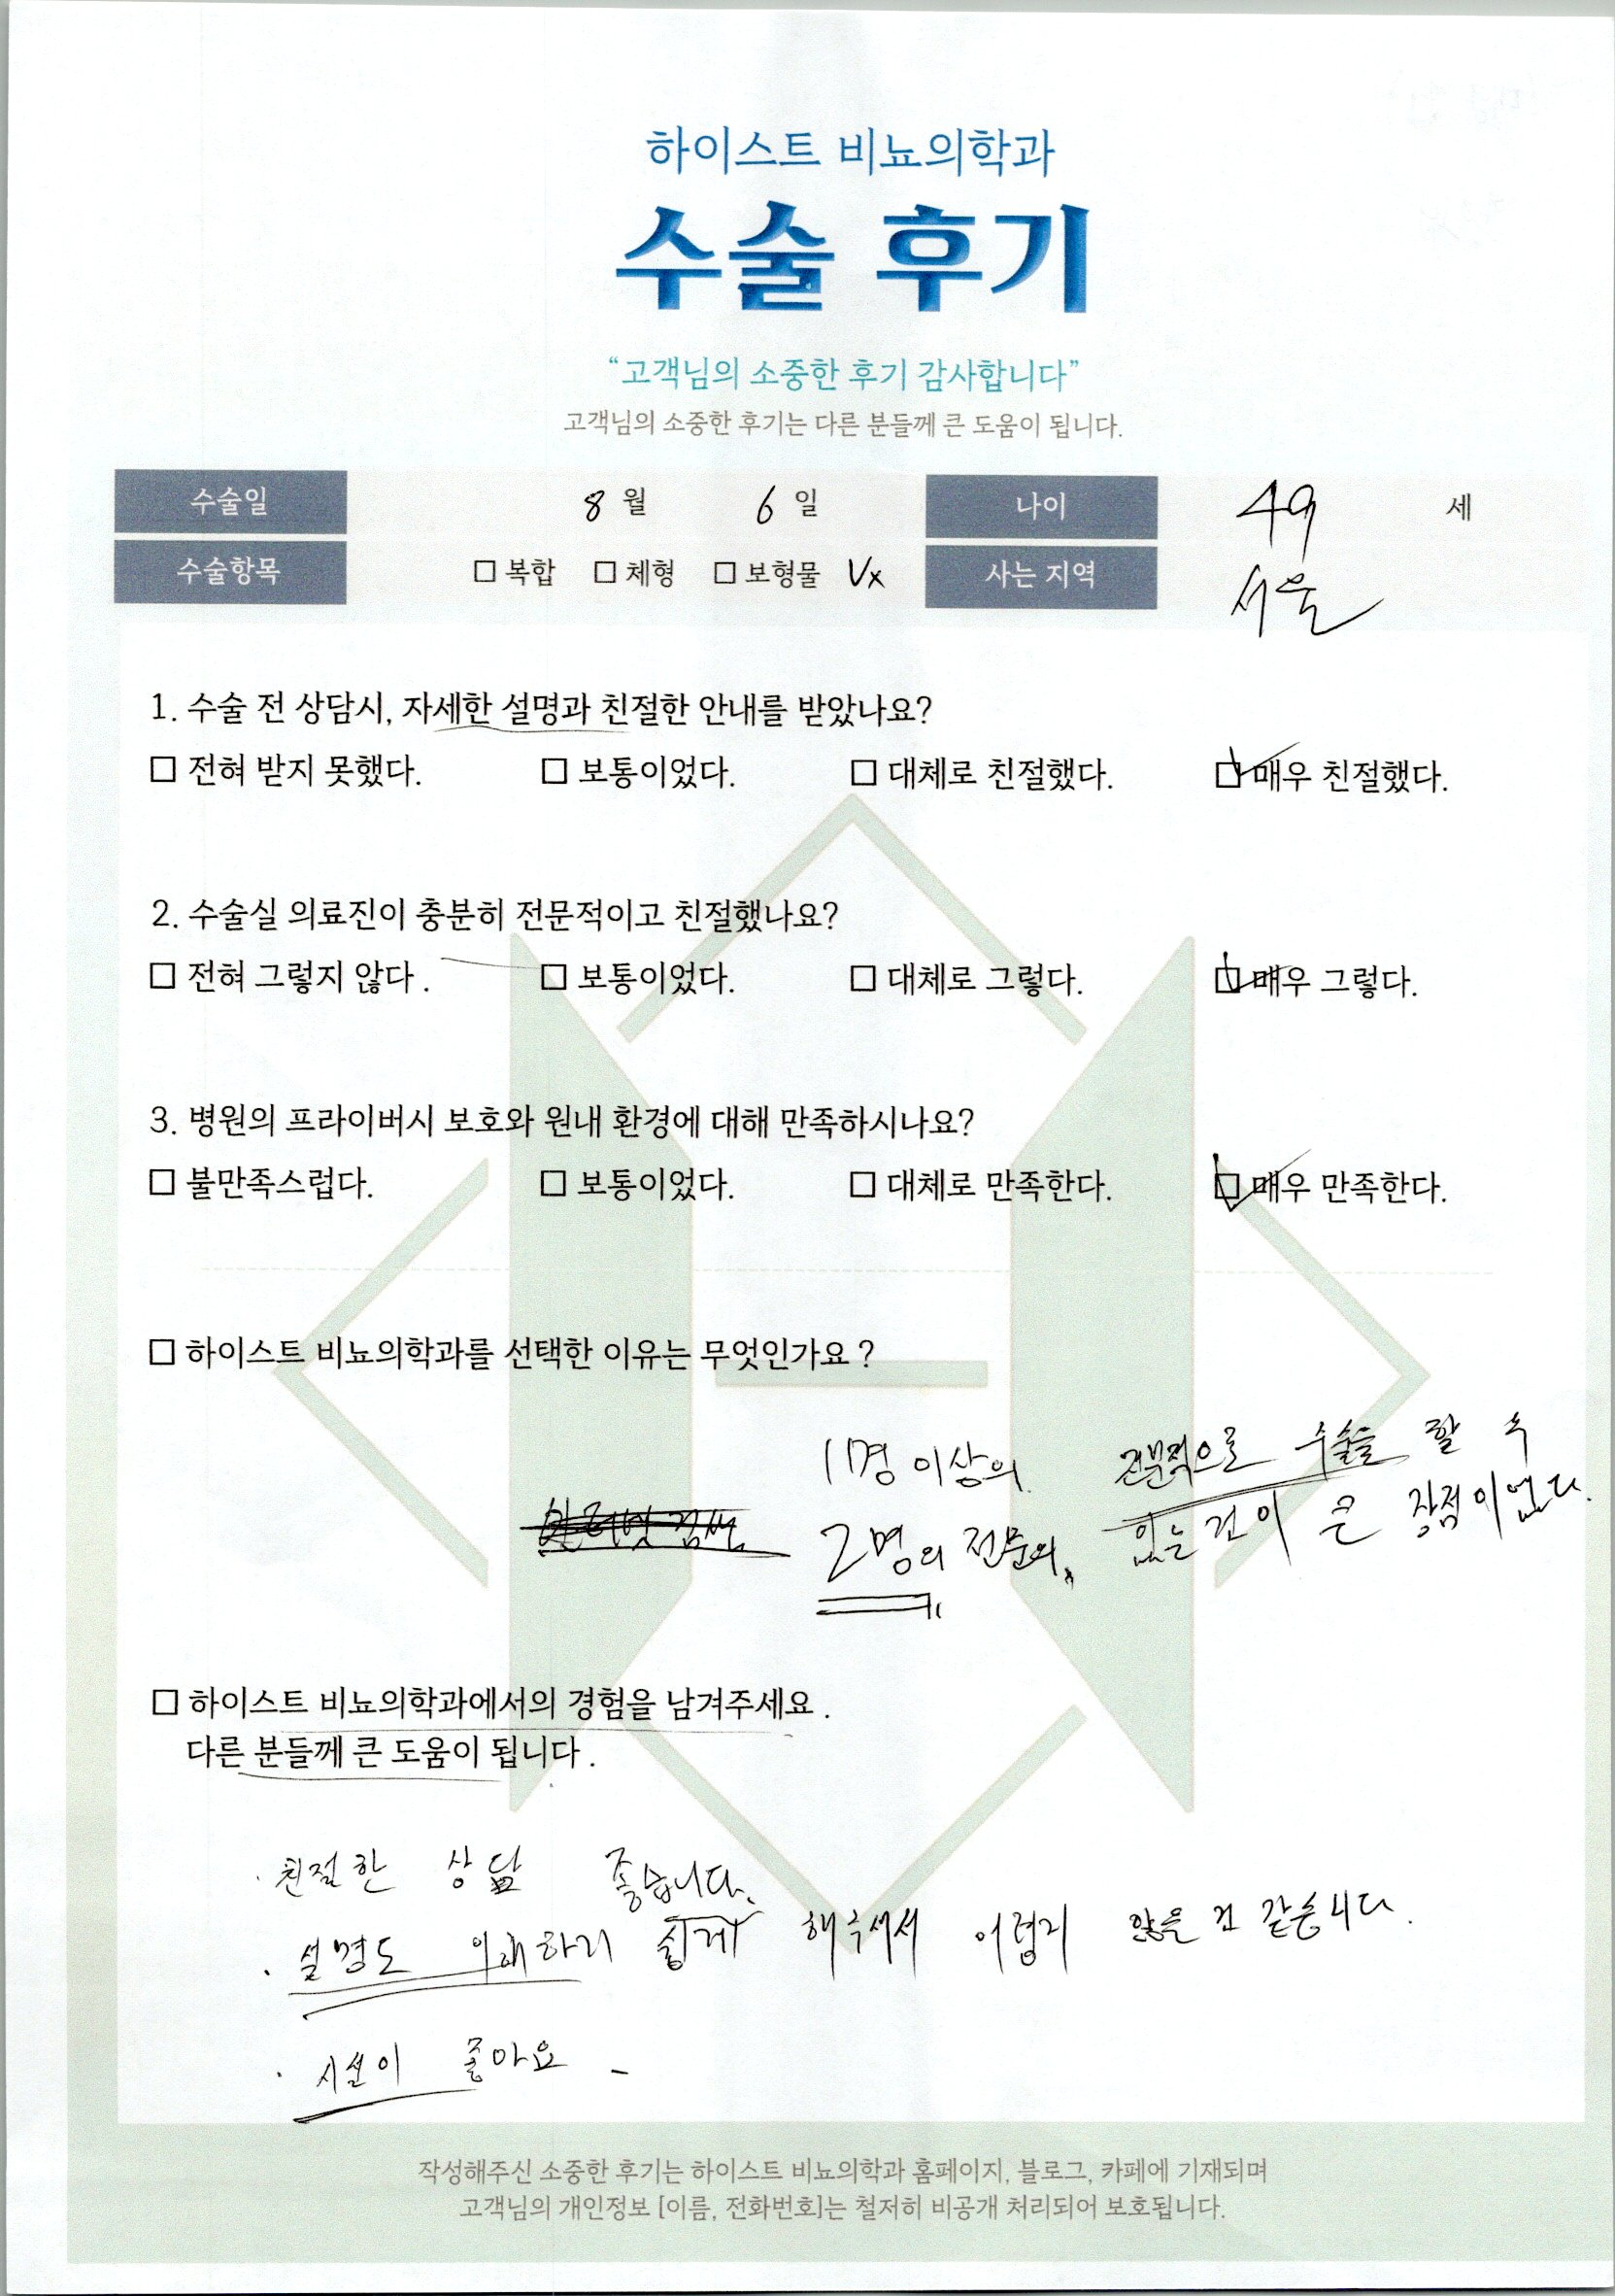 하이스트 비뇨의학과
수술 후기
“고객님의 소중한 후기 감사합니다”
고객님의 소중한 후기는 다른 분들께 큰 도움이 됩니다.
수술일 8 월 6 일 나이 49 세
수술항목 □ 복합 □ 체형 □ 보형물 Vx 사는 지역 서울
1. 수술 전 상담시, 자세한 설명과 친절한 안내를 받았나요?
□ 전혀 받지 못했다. □ 보통이었다. □ 대체로 친절했다. ☑ 매우 친절했다.
2. 수술실 의료진이 충분히 전문적이고 친절했나요?
□ 전혀 그렇지 않다. □ 보통이었다. □ 대체로 그렇다. ☑ 매우 그렇다.
3. 병원의 프라이버시 보호와 원내 환경에 대해 만족하시나요?
□ 불만족스럽다. □ 보통이었다. □ 대체로 만족한다. ☑ 매우 만족한다.
□ 하이스트 비뇨의학과를 선택한 이유는 무엇인가요?
1명 이상의 전문적으로 수술을 할 수
2명의 전문의, 있는 건이 큰 장점이었다.
□ 하이스트 비뇨의학과에서의 경험을 남겨주세요.
다른 분들께 큰 도움이 됩니다.
· 친절한 상담 좋습니다.
· 설명도 이해하리 쉽게 해주셔서 어렵지 않은 건 같습니다.
· 시설이 좋아요
작성해주신 소중한 후기는 하이스트 비뇨의학과 홈페이지, 블로그, 카페에 기재되며
고객님의 개인정보 [이름, 전화번호]는 철저히 비공개 처리되어 보호됩니다.